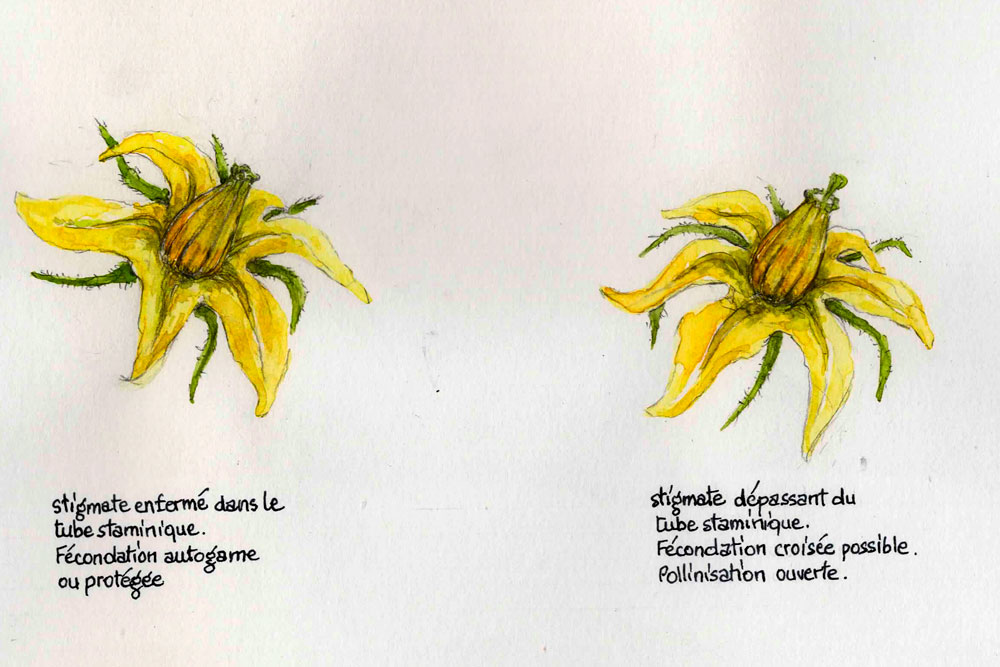 stigmate enfermé dans le
tube staminique.
Fécondation autogame
ou protégée
stigmate dépassant du
tube staminique.
Fécondation croisée possible.
Pollinisation ouverte.